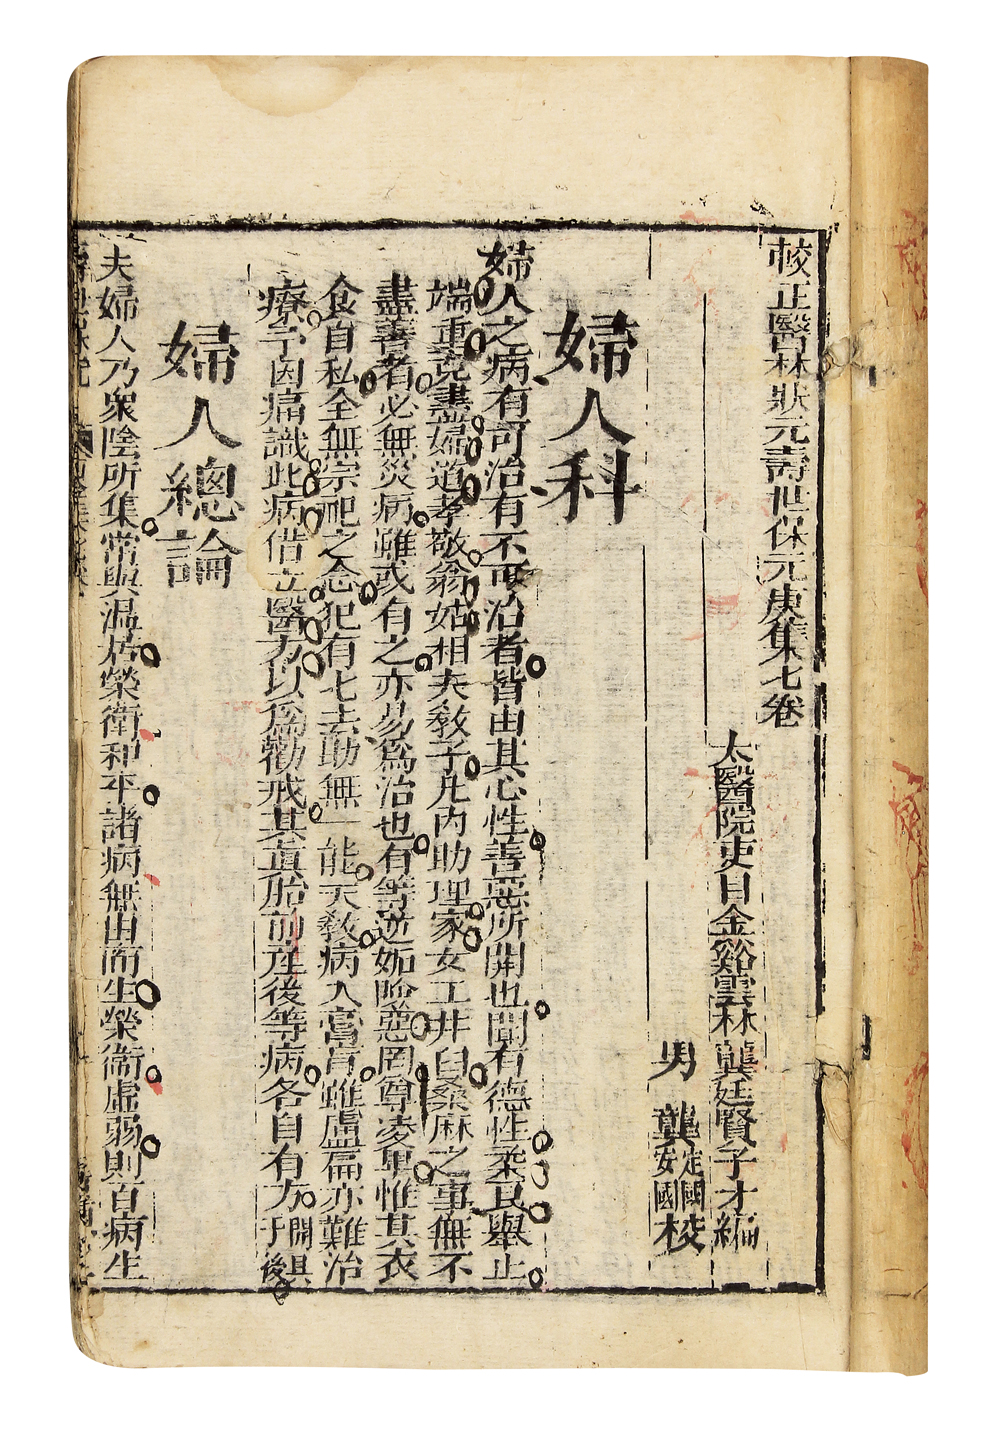 校正醫林狀元壽世保元庚集七卷
太醫院吏目金谿雲林龔廷賢子才編
男 龔定國安國校
婦人科
婦人之病有可治有不可治者皆由其心性善惡所關也聞有德性柔良舉止
端重克盡婦道孝敬翁姑相夫教子凡內助理家女工井臼桑麻之事無不
盡善者必無災病雖或有之亦易為治也有等逆妬險惡罔尊凌卑惟其衣
食自私全無宗祀之念犯有七去助無一能天教病入膏肓雖盧扁亦難治
療予因痛識此病借立醫方以為勸戒其直胎前產後等病各自有方開具于後
婦人總論
夫婦人乃衆陰所集常與溫居榮衛和平諸病無由而生榮衛虛弱則百病生